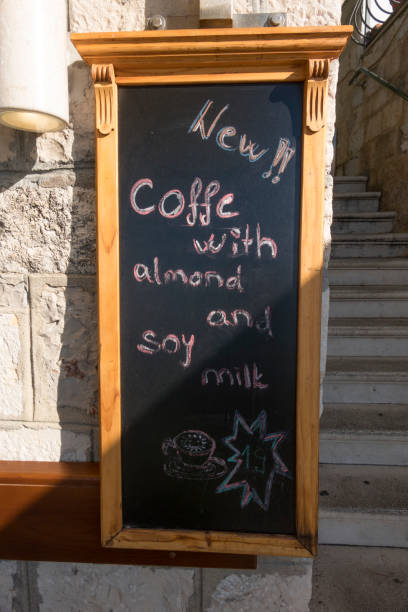 New!!
Coffe
with
almond
and
soy
milk